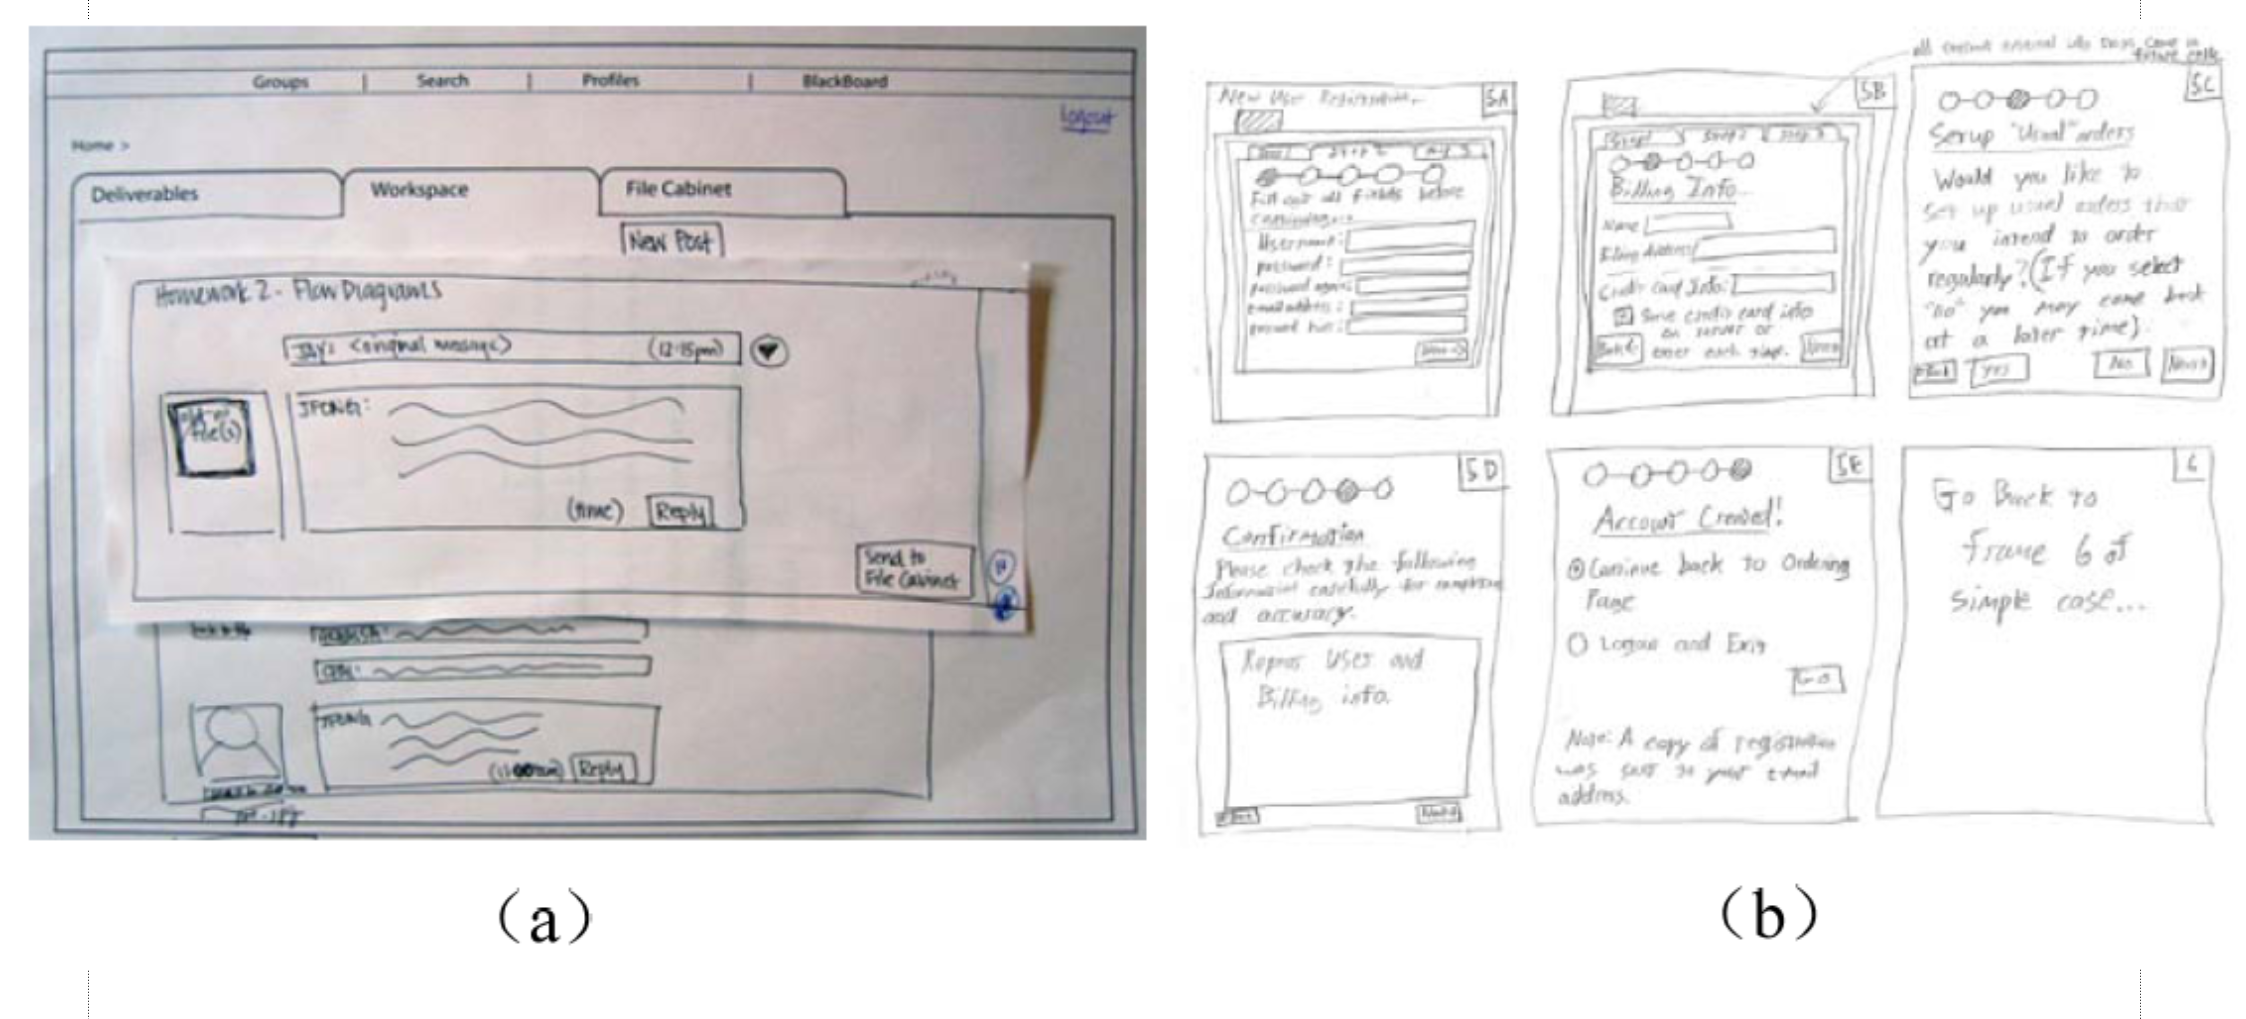 Groups | Search | Profiles | BlackBoard
Logout
Home >
Deliverables
Workspace
File Cabinet
New Post
Homework 2 - Flow Diagrams
JAY: <original message> (12:15pm)
File(s)
JFONG:
(time) Reply
Send to
File Cabinet
JFONG
Reply
(a)
New User Registration
5A
Step 2
Fill out all fields before
continuing...
Username:
password:
password again:
email address:
5B
Step 1 Step 2 Step 3
Billing Info
Name
Billing Address
Credit Card Info:
Save credit card info
on server or
enter each time.
Back
5C
Setup "Usual" orders
Would you like to
set up usual orders that
you intend to order
regularly? (If you select
"no" you may come back
at a later time).
Back Yes No Next
5D
Confirmation
Please check the following
information carefully for
and accuracy.
User and
Billing info.
5E
Account Created!
Continue back to Ordering
Page
Logout and Exit
Go
Note: A copy of registration
was sent to your email
address.
6
Go Back to
frame 6 of
simple case...
(b)